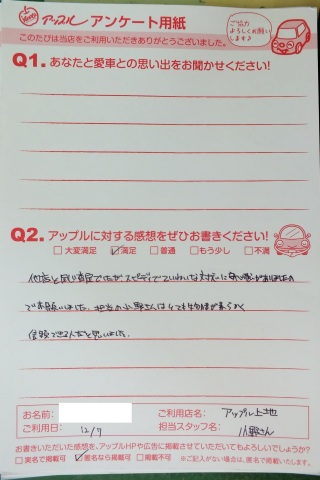 アップル アンケート用紙
ご協力
よろしくお願い
します♪
このたびは当店をご利用いただきありがとうございました。
Q1. あなたと愛車との思い出をお聞かせください!
Q2. アップルに対する感想をぜひお書きください!
□大変満足 ☑満足 □普通 □もう少し □不満
他店と同じ査定でしたが、スピーディでていねいな対応に がありましたの
でお願いしました。担当の小野さんはとても物腰が柔らかく
信頼できる人だと思いました。
お名前:
ご利用店名: アップル上地
ご利用日: 12/7
担当スタッフ名: 小野さん
お書きいただいた感想を、アップルHPや広告に掲載させていただいてもよろしいでしょうか?
□実名で掲載可 ☑匿名なら掲載可 □掲載不可 ※ご記入がない場合は、匿名で掲載いたします。